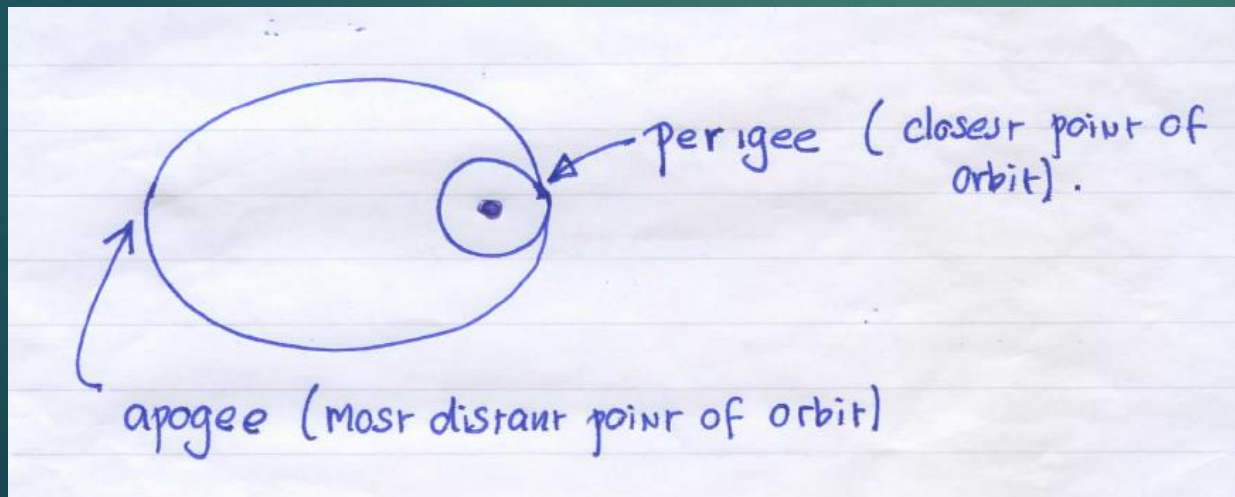 perigee (closest point of
orbit).
apogee (most distant point of orbit)